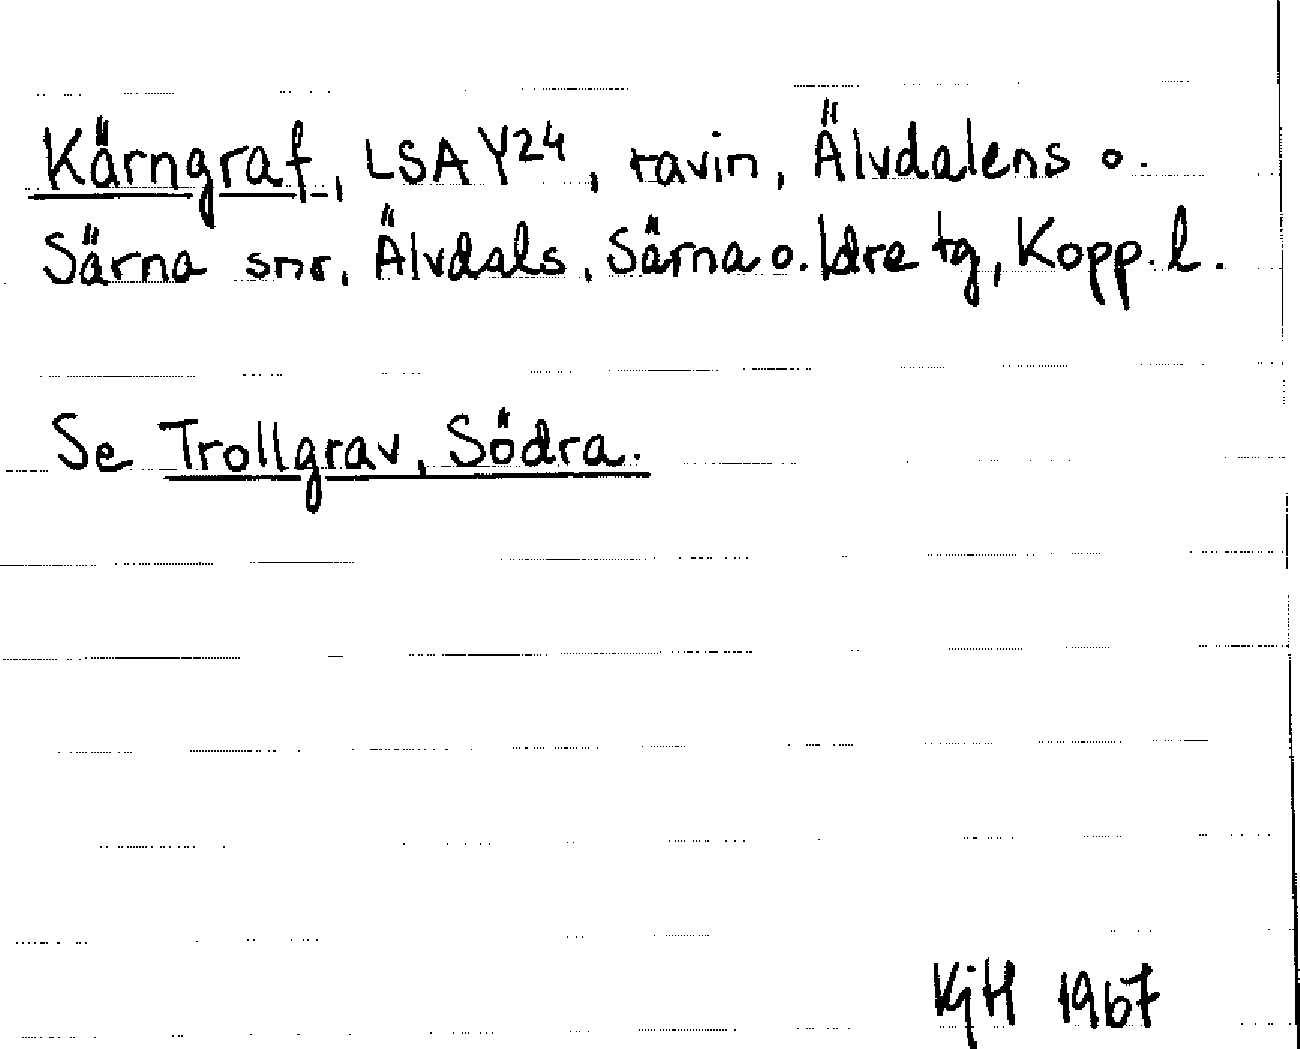 Kärngraf, LSA Y24, ravin, Älvdalens o.
Särna snr, Älvdals, Särna o. Idre tg, Kopp. l.
Se Trollgrav, Södra.
KjH 1967